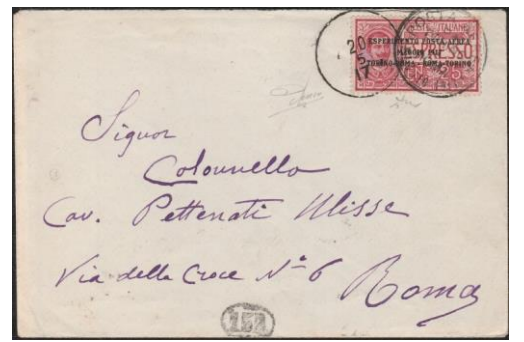 20
5
17
POSTE ITALIANE
ESPERIMENTO POSTA AEREA
MAGGIO 1917
TORINO-ROMA · ROMA-TORINO
ESPRESSO
Signor
Colonnello
Cav. Pettenati Ulisse
Via della Croce Nº 6 Roma
152